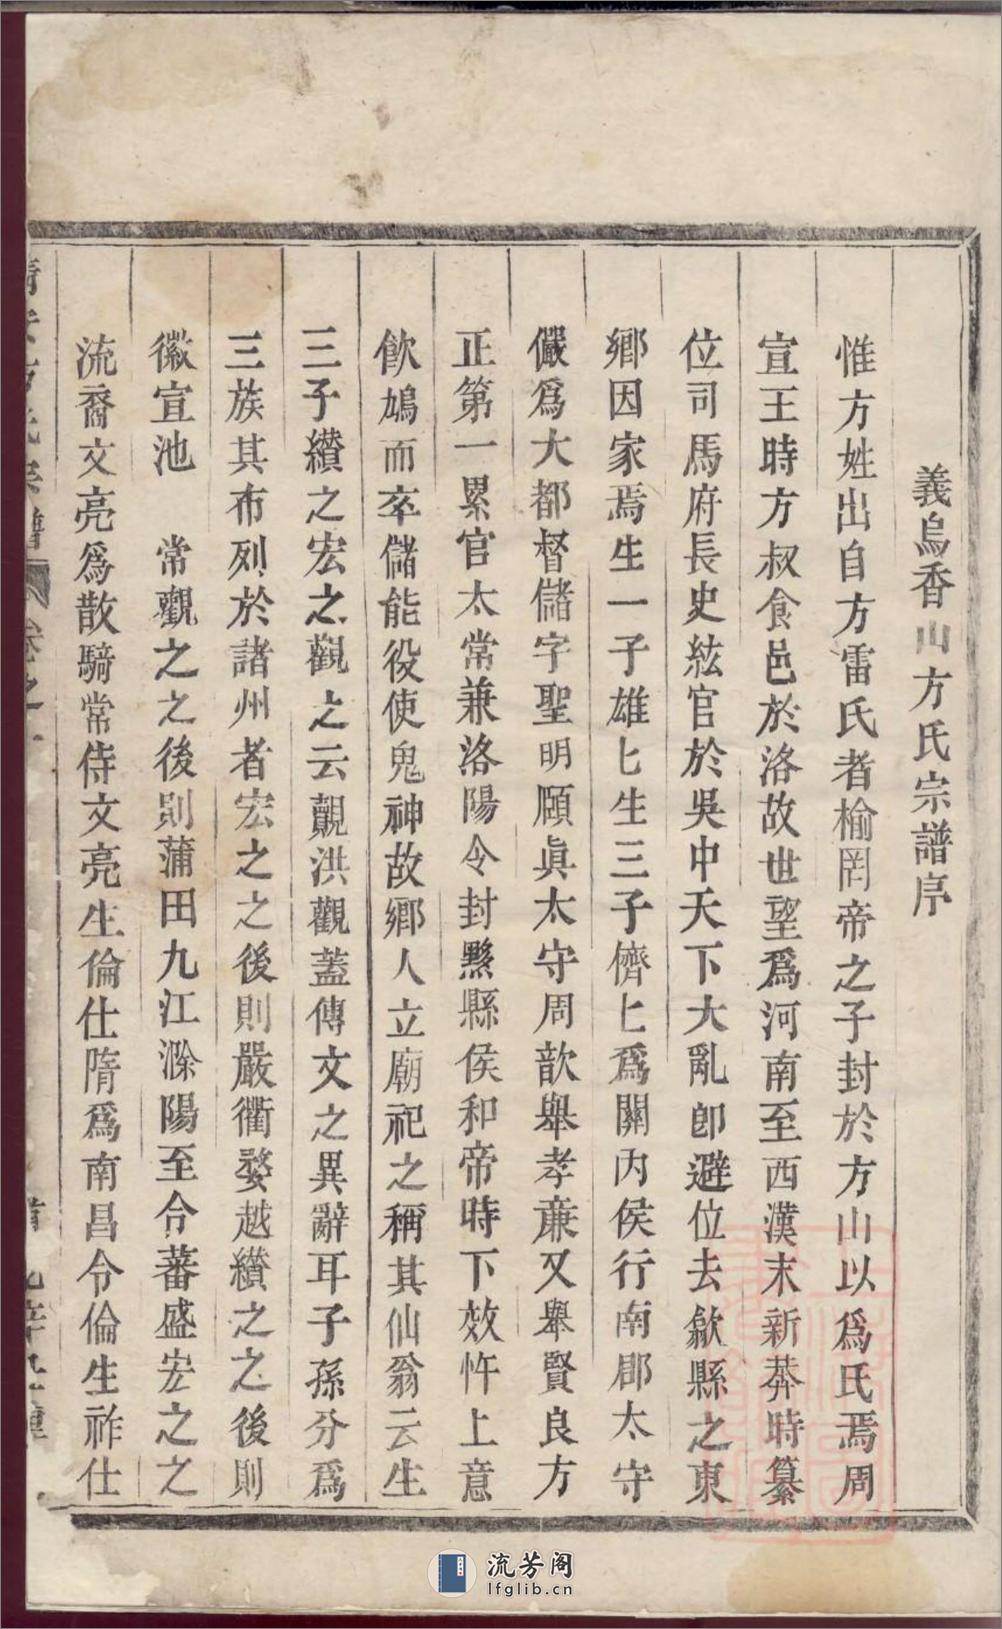 義烏香山方氏宗譜序
惟方姓出自方雷氏者榆罔帝之子封於方山以爲氏焉周
宣王時方叔食邑於洛故世望爲河南至西漢末新莽時纂
位司馬府長史紘官於吳中天下大亂卽避位去歙縣之東
鄉因家焉生一子雄匕生三子儕匕爲關內侯行南郡太守
儼爲大都督儲字聖明願眞太守周歆舉孝亷又舉賢良方
正第一累官太常兼洛陽令封黟縣侯和帝時下效忤上意
飮鴆而卒儲能役使鬼神故鄉人立廟祀之稱其仙翁云生
三子纘之宏之觀之云覿洪觀蓋傳文之異辭耳子孫分爲
三族其布列於諸州者宏之之後則嚴衢婺越纘之之後則
徽宣池 常觀之之後則蒲田九江滁陽至今蕃盛宏之之
流裔文亮爲散騎常侍文亮生倫仕隋爲南昌令倫生祚仕
方氏宗譜 卷之一
流芳阁
lfglib.cn